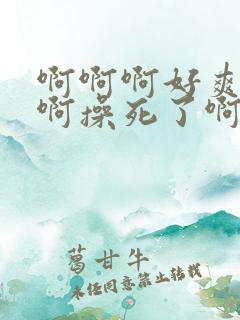 啊啊啊好爽
啊操死了啊
葛甘牛
未经同意禁止转载